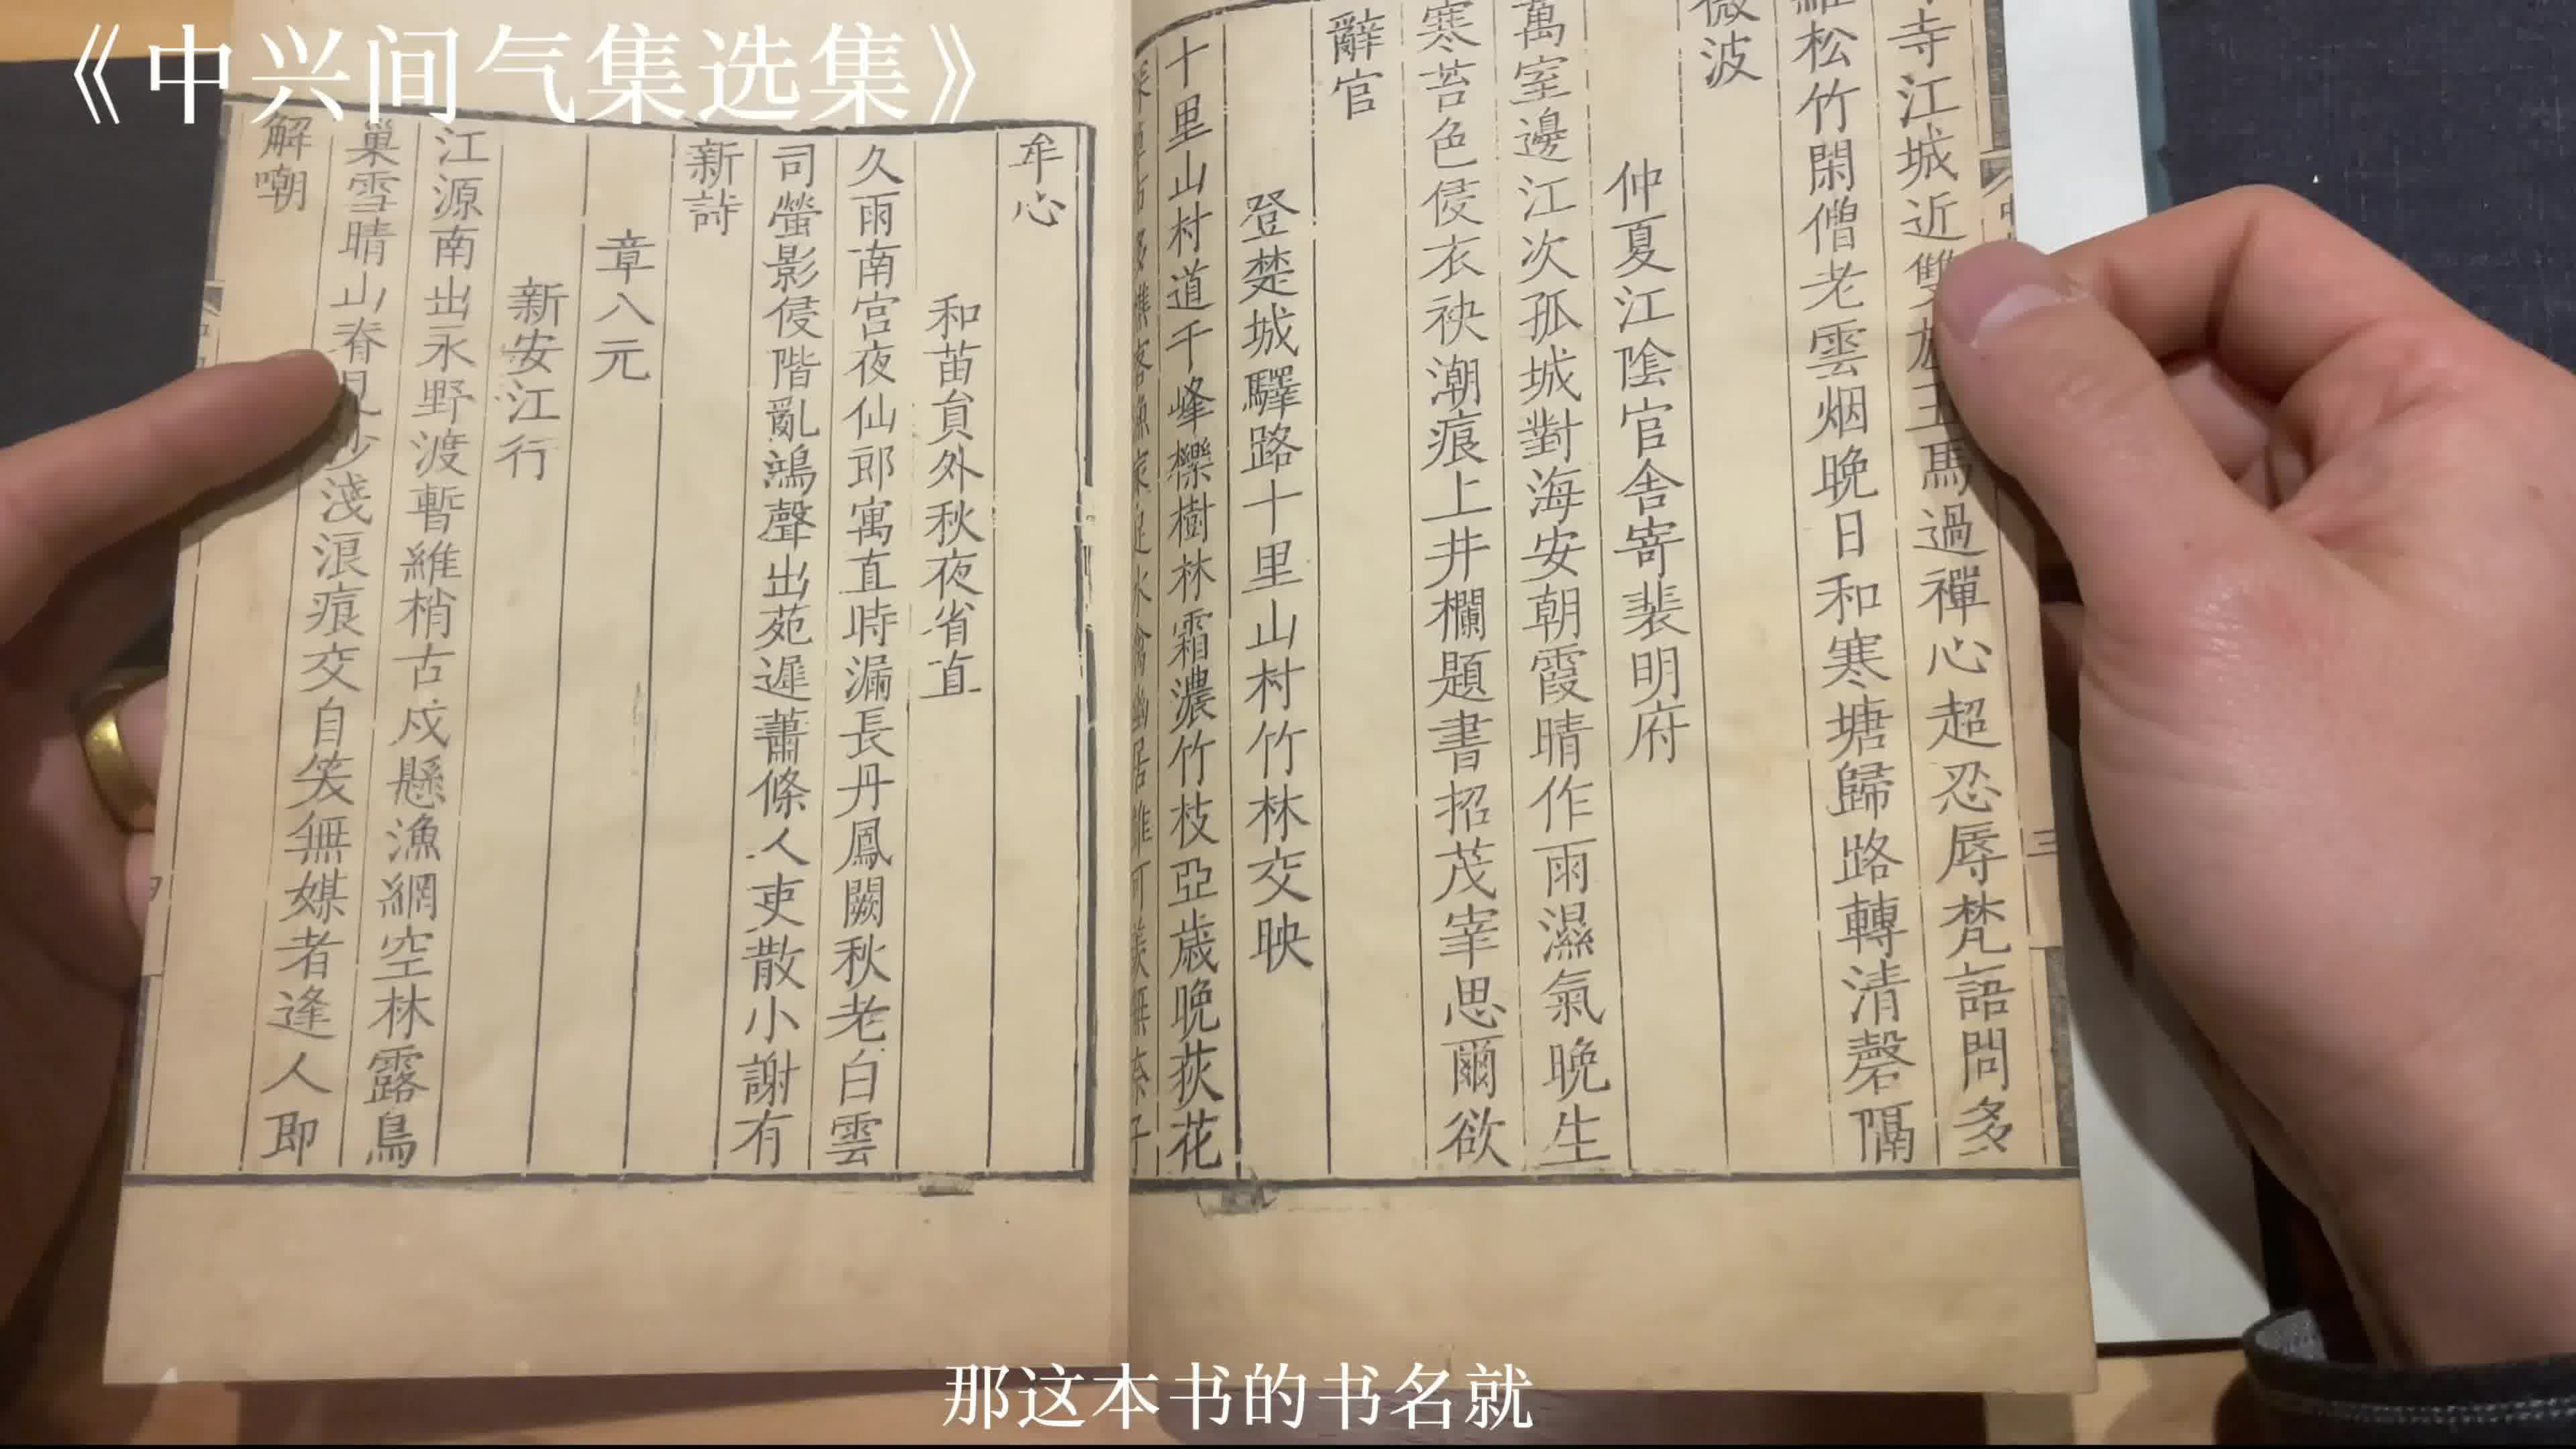 《中兴间气集选集》
寺江城近雙五馬過禪心超忍辱梵語問多
松竹閑僧老雲烟晚日和寒塘歸路轉清磬隔
微波
仲夏江陰官舍寄裴明府
萬室邊江次孤城對海安朝霞晴作雨濕氣晚生
寒苔色侵衣袂潮痕上井欄題書招茂宰思爾欲
辭官
登楚城驛路十里山村竹林交映
十里山村道千峰櫟樹林霜濃竹枝亞歳晚荻花
牟心
和苗貟外秋夜省直
久雨南宫夜仙郎寓直時漏長丹鳳闕秋老白雲
司螢影侵階亂鴻聲出苑遲蕭條人吏散小謝有
新詩
章八元
新安江行
江源南出永野渡暫維梢古戍懸漁網空林露鳥
巢雪晴山脊見沙淺浪痕交自笑無媒者逢人即
解嘲
那这本书的书名就